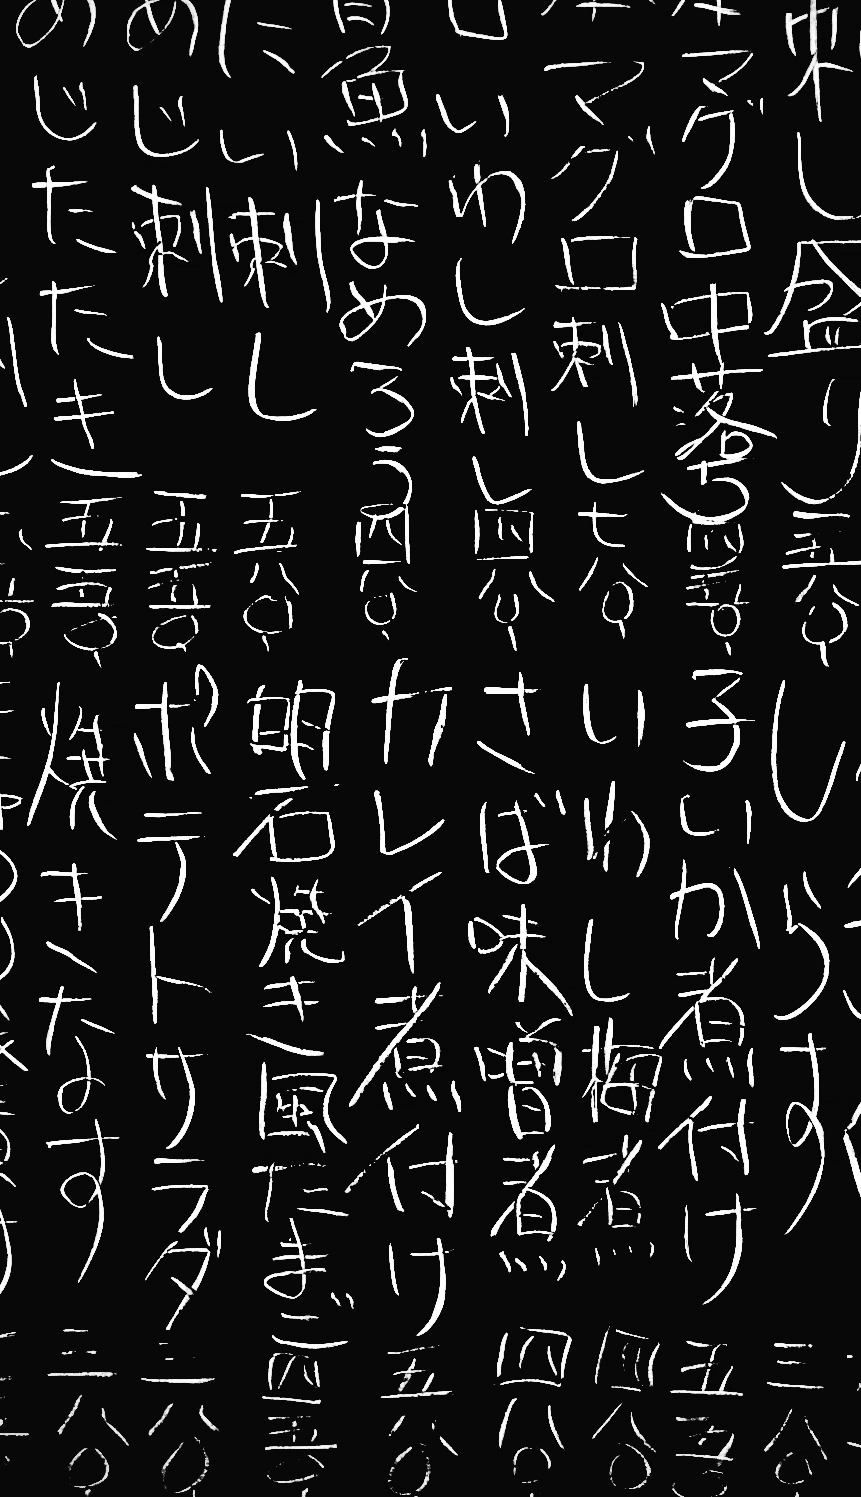 刺し盛り
マグロ中落ち 四五〇
マグロ刺し 七八〇
いわし刺し 四八〇
魚なめろう 四八〇
にい刺し 五八〇
めじ刺し 五五〇
めじたたき 五五〇
しらす 三八〇
子いか煮付け 五五〇
いわし梅煮 四八〇
さば味噌煮 四八〇
カレイ煮付け 五八〇
明石焼き風たまご 四五〇
ポテトサラダ 二八〇
焼きなす 三八〇